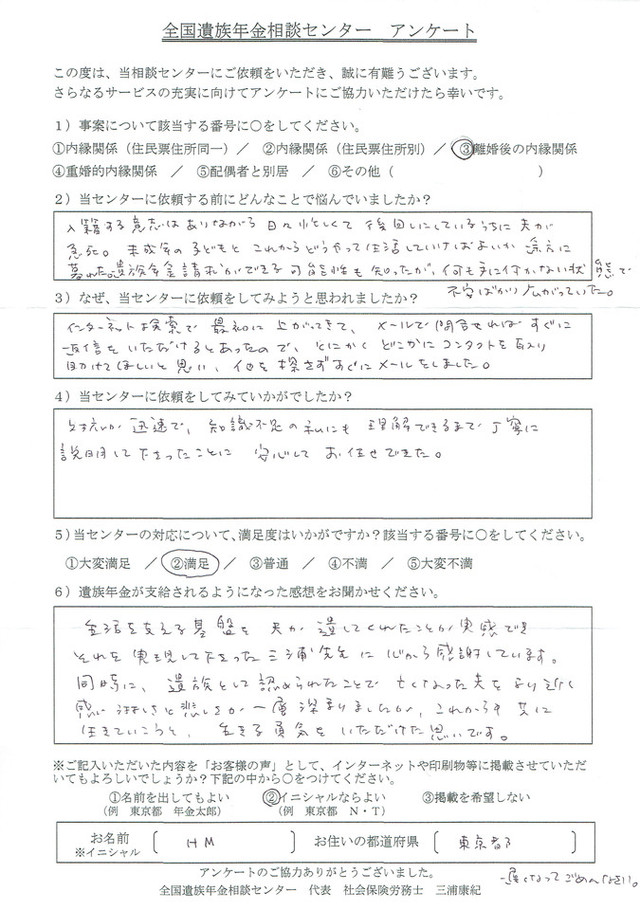 全国遺族年金相談センター　アンケート
この度は、当相談センターにご依頼をいただき、誠に有難うございます。
さらなるサービスの充実に向けてアンケートにご協力いただけたら幸いです。
1）事案について該当する番号に○をしてください。
①内縁関係（住民票住所同一）／　②内縁関係（住民票住所別）／　③離婚後の内縁関係
④重婚的内縁関係　／　⑤配偶者と別居　／　⑥その他（　　　　　　　　　　）
2）当センターに依頼する前にどんなことで悩んでいましたか？
入籍する意志はありながら日々忙しくて後回しにしているうちに夫が
急死。未成年の子どもとこれからどうやって生活していけばよいか途方に
暮れた。遺族年金請求ができる可能性も知ったが、何も手に付かない状態で
不安ばかり広がっていた。
3）なぜ、当センターに依頼をしてみようと思われましたか？
インターネット検索で最初に上がってきて、メールで問合せればすぐに
返信をいただけるとあったので、とにかくどこかにコンタクトを取り
助けてほしいと思い、他を探さずすぐにメールをしました。
4）当センターに依頼をしてみていかがでしたか？
対応が迅速で、知識不足の私にも理解できるまで丁寧に
説明して下さったことに安心してお任せできた。
5）当センターの対応について、満足度はいかがですか？該当する番号に○をしてください。
①大変満足　／　②満足　／　③普通　／　④不満　／　⑤大変不満
6）遺族年金が支給されるようになった感想をお聞かせください。
生活を支える基盤を夫が遺してくれたことが実感でき
それを実現して下さった三浦先生に心から感謝しています。
同時に、遺族として認められたことで亡くなった夫をより近く
感じ淋しさと悲しさが一層深まりましたが、これからも共に
生きていこうと、生きる勇気をいただけた思いです。
※ご記入いただいた内容を「お客様の声」として、インターネットや印刷物等に掲載させていただ
いてもよろしいでしょうか？下記の中から○をつけてください。
①名前を出してもよい　　②イニシャルならよい　　③掲載を希望しない
（例　東京都　年金太郎）　　（例　東京都　N・T）
お名前　〔　HM　〕　お住いの都道府県　〔　東京都　〕
※イニシャル
アンケートのご協力ありがとうございました。
遅くなってごめんなさい。
全国遺族年金相談センター　代表　社会保険労務士　三浦康紀